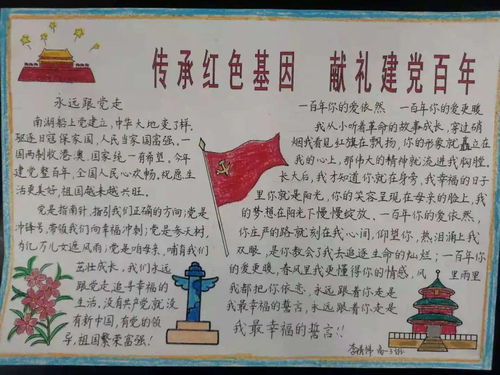 传承红色基因 献礼建党百年
永远跟党走
南湖船上党建立，中华大地变了样.
驱逐日寇保家国，人民当家国富强。一
国两制收港澳，国家统一有希望，今年
建党整百年，全国人民心欢畅，优愿生
活更美好，祖国越来越兴旺。
党是指南针，指引我们正确的方向；党是
冲锋号，带领我们向幸福冲刺；党是参天树，
为亿万儿女遮风雨；党是咱母亲，哺育我们
茁壮成长，我们永远
跟党走追寻幸福的
生活，没有共产党就没
有新中国，有党的领
导，祖国繁荣富强！
一百年你的爱依然 一百年你的爱更暖
我从小听着革命的故事成长，穿过硝
烟我看见红旗在飘扬，你的形象就矗立在
我的心上，那伟大的精神就流进我胸膛，
长大后，我才知道你就在身旁，我幸福的日子
里你就是阳光，你的笑容呈现在母亲的脸上，我
的梦想在阳光下慢慢绽放、一百年你的爱依然，
你庄严的路就刻在我心间，仰望你，热泪涌上我
双眼，是你教会了我去追逐生命的灿烂；一百年
你的爱更暖，春风里我更懂得你的情感，风里雨里
我都把你依恋，永远跟着你走是
我最幸福的誓言，永远跟着你走是
我最幸福的誓言！！
高一